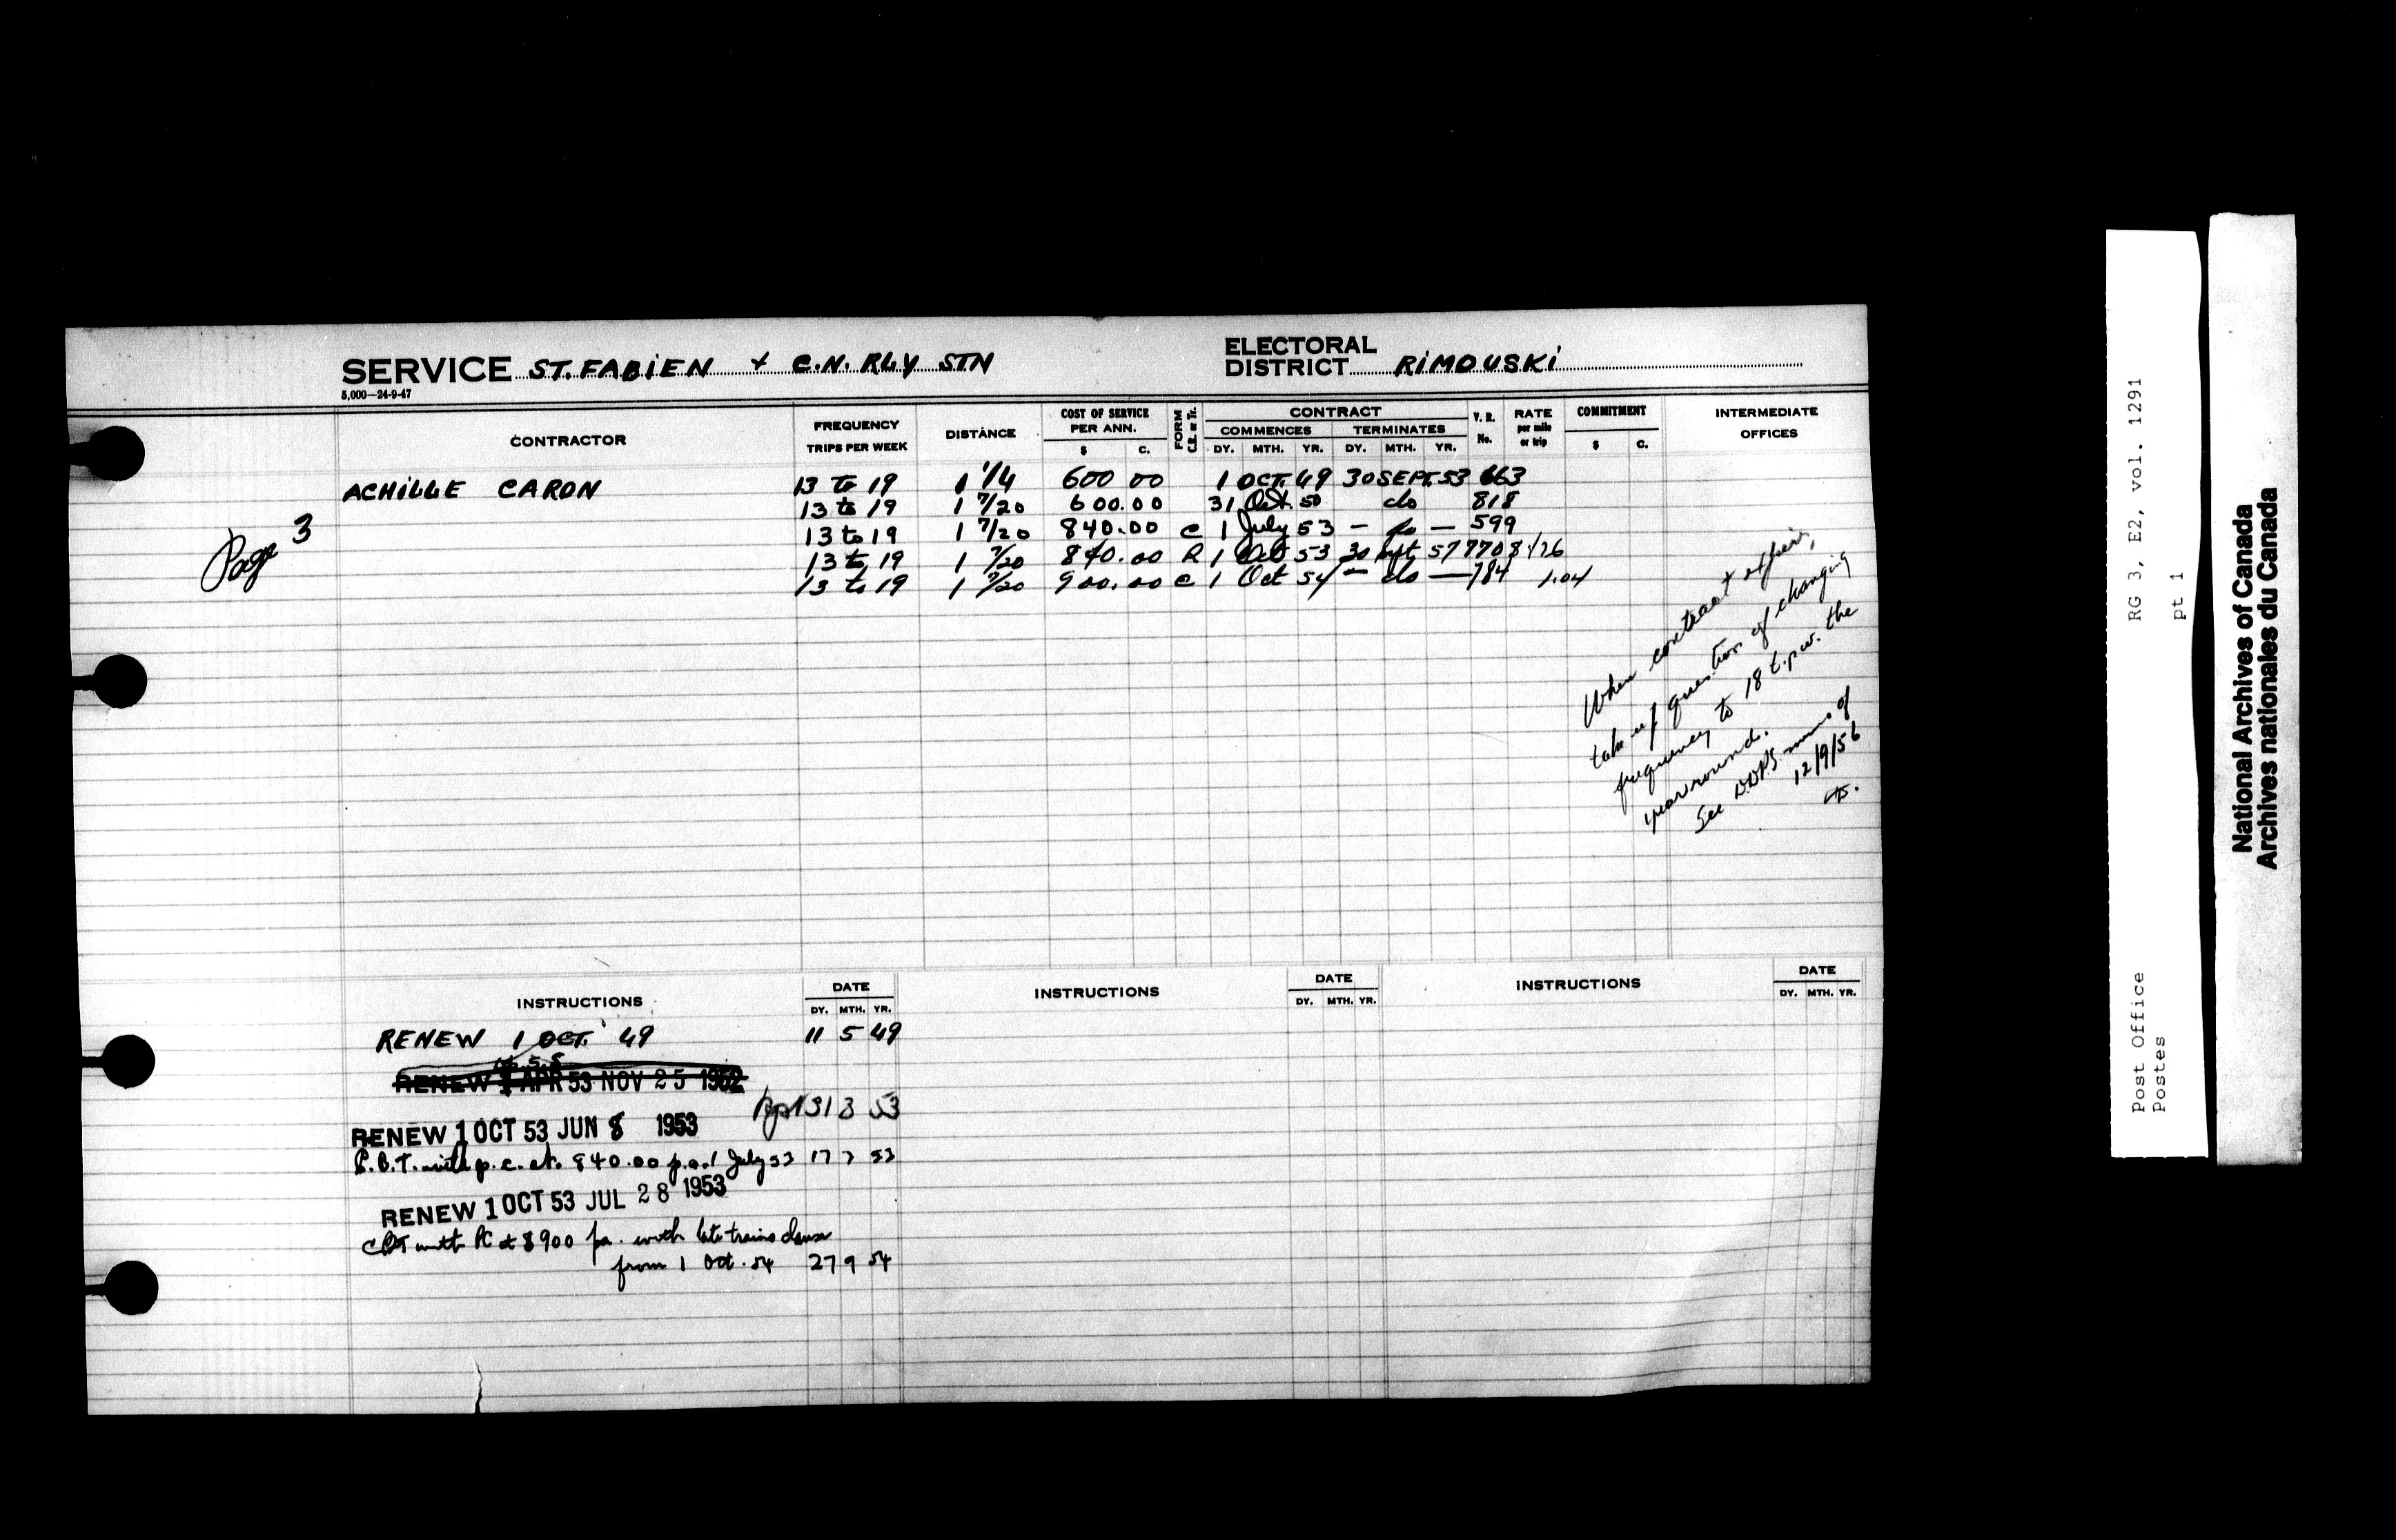 SERVICE ST. FABIEN + C.N. RLY STN
ELECTORAL DISTRICT RIMOUSKI
5,000—24-9-47
CONTRACTOR
FREQUENCY TRIPS PER WEEK
DISTANCE
COST OF SERVICE PER ANN. $ C.
FORM C.B. or Tr.
CONTRACT
COMMENCES DY. MTH. YR.
TERMINATES DY. MTH. YR.
V. R. No.
RATE per mile or trip
COMMITMENT $ C.
INTERMEDIATE OFFICES
ACHILLE CARON 13 To 19 1 1/4 600 00 1 OCT. 49 30 SEPT. 53 663
13 to 19 1 7/20 600.00 31 Oct. 50 do 818
13 to 19 1 7/20 840.00 C 1 July 53 — do — 599
13 to 19 1 7/20 840.00 R 1 Oct 53 30 Sept 57 770
13 to 19 1 7/20 900.00 C 1 Oct 54 — do — 784 1.04
Page 3
When contract expires,
take up question of changing
frequency to 18 t.p.w. the
year round.
See D.D.P.S. memo of
12/9/56
INSTRUCTIONS DATE DY. MTH. YR.
INSTRUCTIONS DATE DY. MTH. YR.
INSTRUCTIONS DATE DY. MTH. YR.
RENEW 1 OCT. 49 11 5 49
RENEW 1 APR 53 NOV 25 1952
31 3 53
RENEW 1 OCT 53 JUN 8 1953
C.B.T. with p.c. at 840.00 p.a. 1 July 53 17 7 53
RENEW 1 OCT 53 JUL 28 1953
CBT with PC at $900 pa. with late trains clause
from 1 Oct. 54 27 9 54
RG 3, E2, vol. 1291
pt 1
Post Office
Postes
National Archives of Canada
Archives nationales du Canada